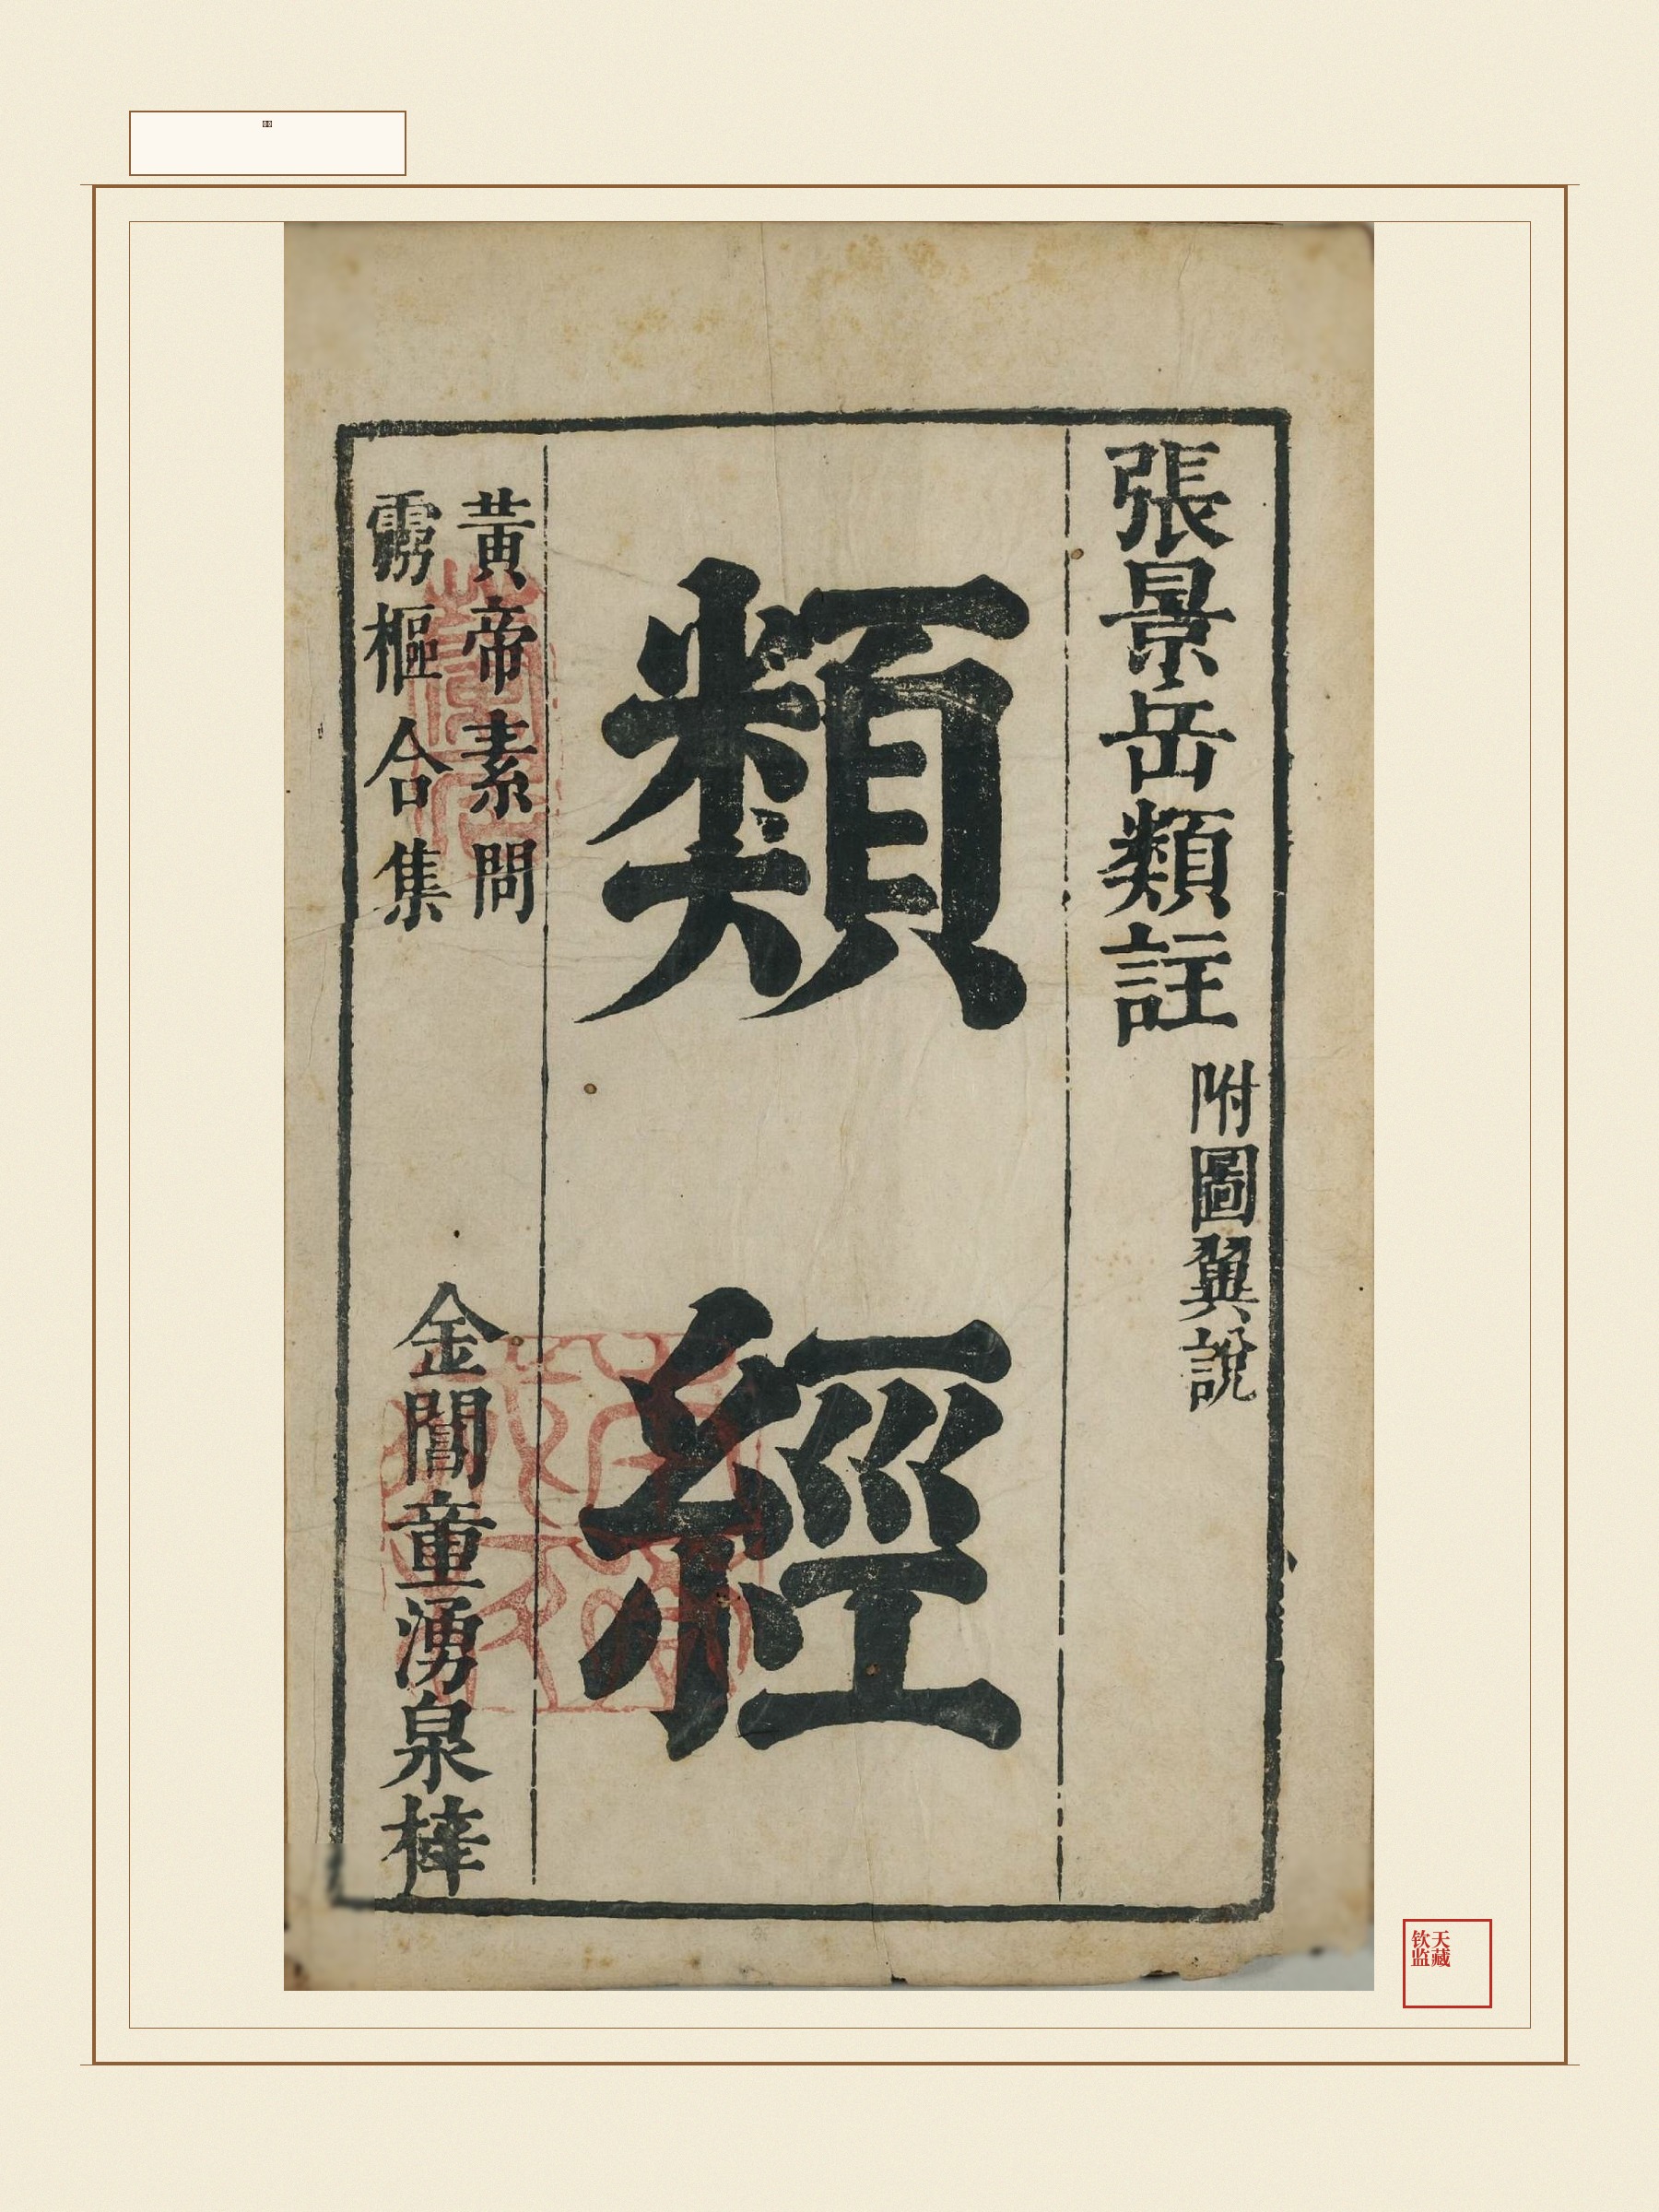 張景岳類註
附圖翼說
類經
黃帝素問
靈樞合集
金閶童湧泉梓
天藏
钦监